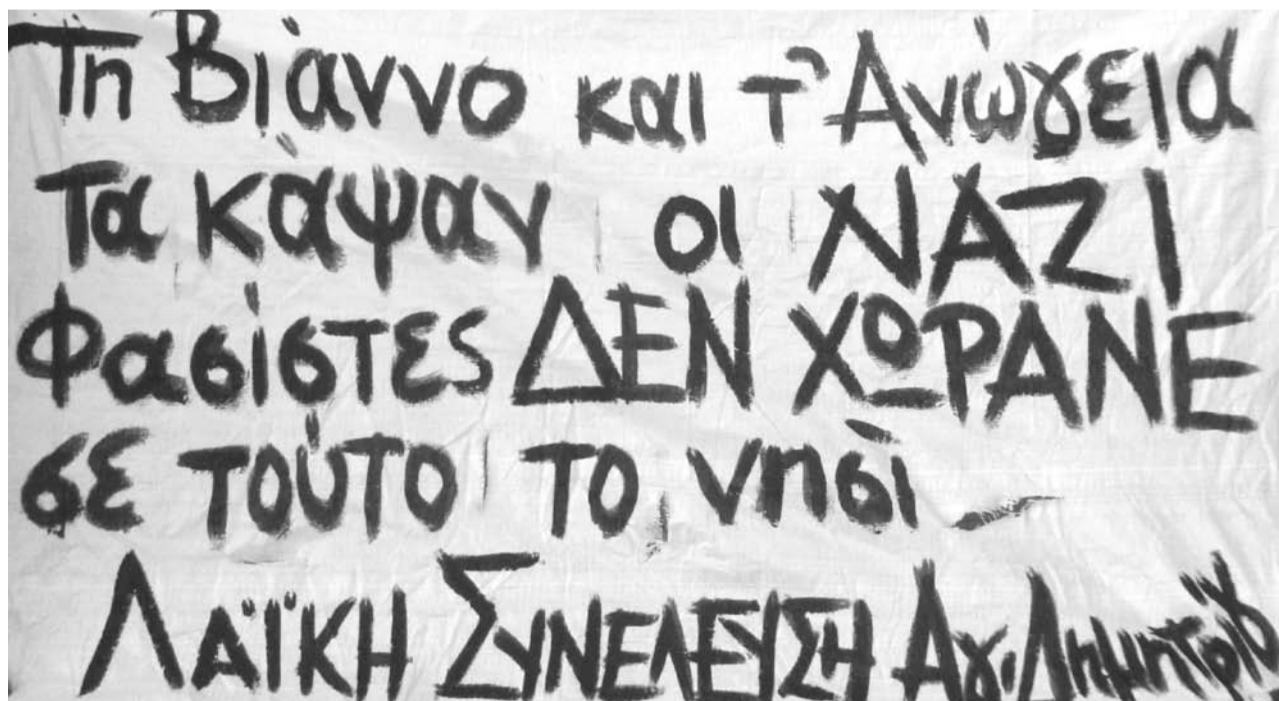 Τη Βιάννο και τ' Ανώγεια
Τα κάψαν οι ΝΑΖΙ
Φασίστες ΔΕΝ ΧΩΡΑΝΕ
σε τούτο το νησί
ΛΑΪΚΗ ΣΥΝΕΛΕΥΣΗ Αγ. Δημητρίου